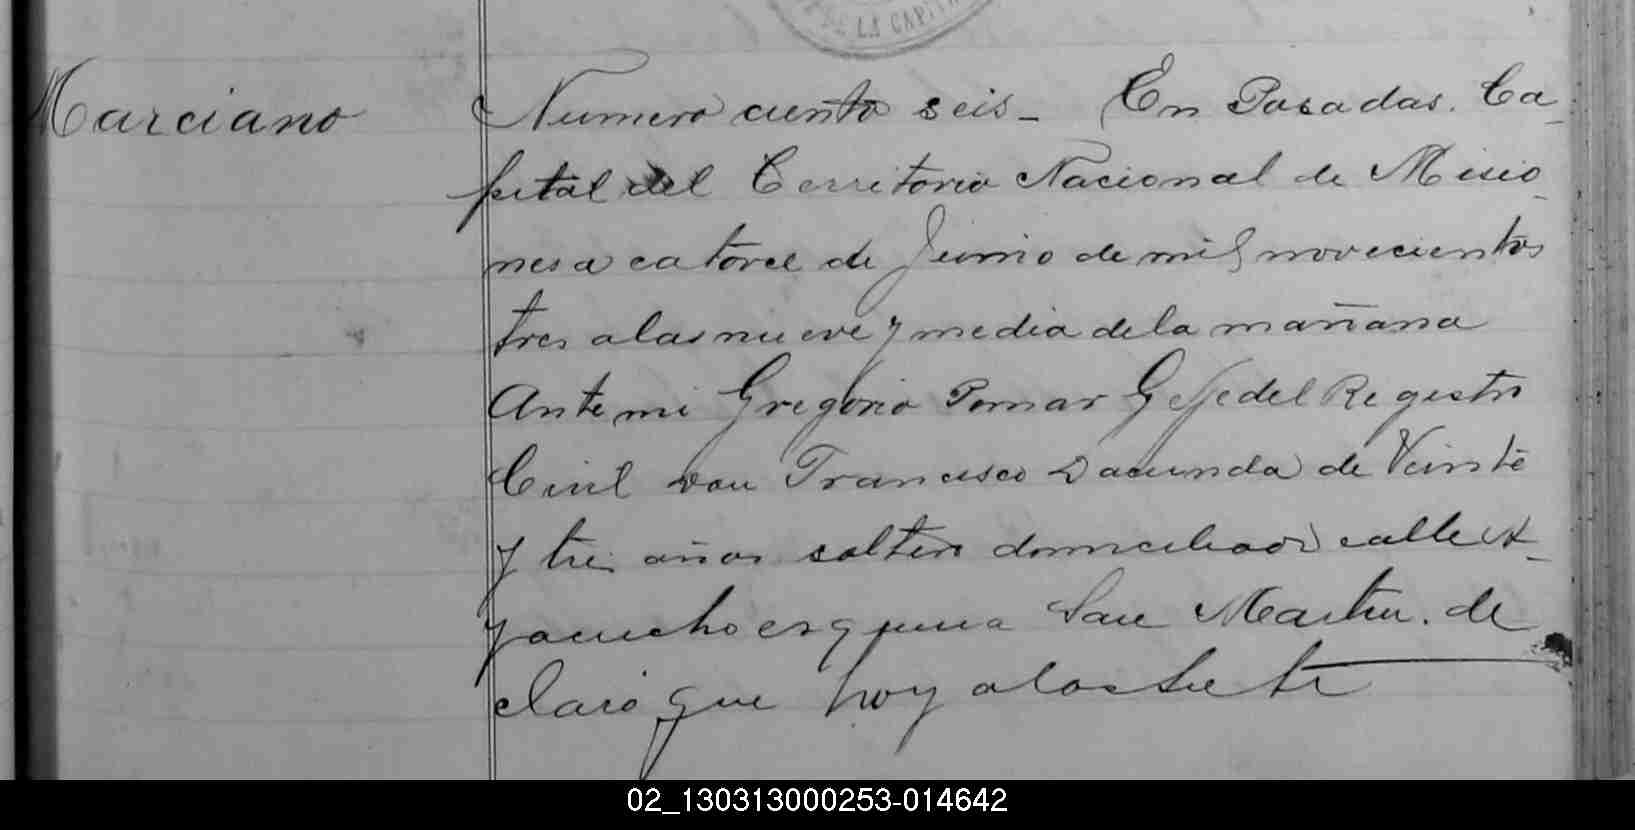 DE LA CAPITA
Marciano
Numero ciento seis_ En Posadas. Ca_
pital del Territorio Nacional de Misio_
nes a catorce de Junio de mil novecientos
tres a las nueve y media de la mañana
Ante mi Gregorio Pomar Gefe del Registro
Civil don Francisco Dacunda de Veinte
y tres años soltero domiciliado calle A_
yacucho esquina San Martin. de
claró que hoy a las siete
02_130313000253-014642